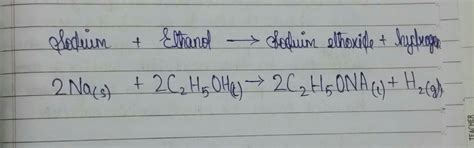 Sodium + Ethanol → Sodium ethoxide + hydrogen
2Na(s) + 2C₂H₅OH(l) → 2C₂H₅ONA(l) + H₂(g)